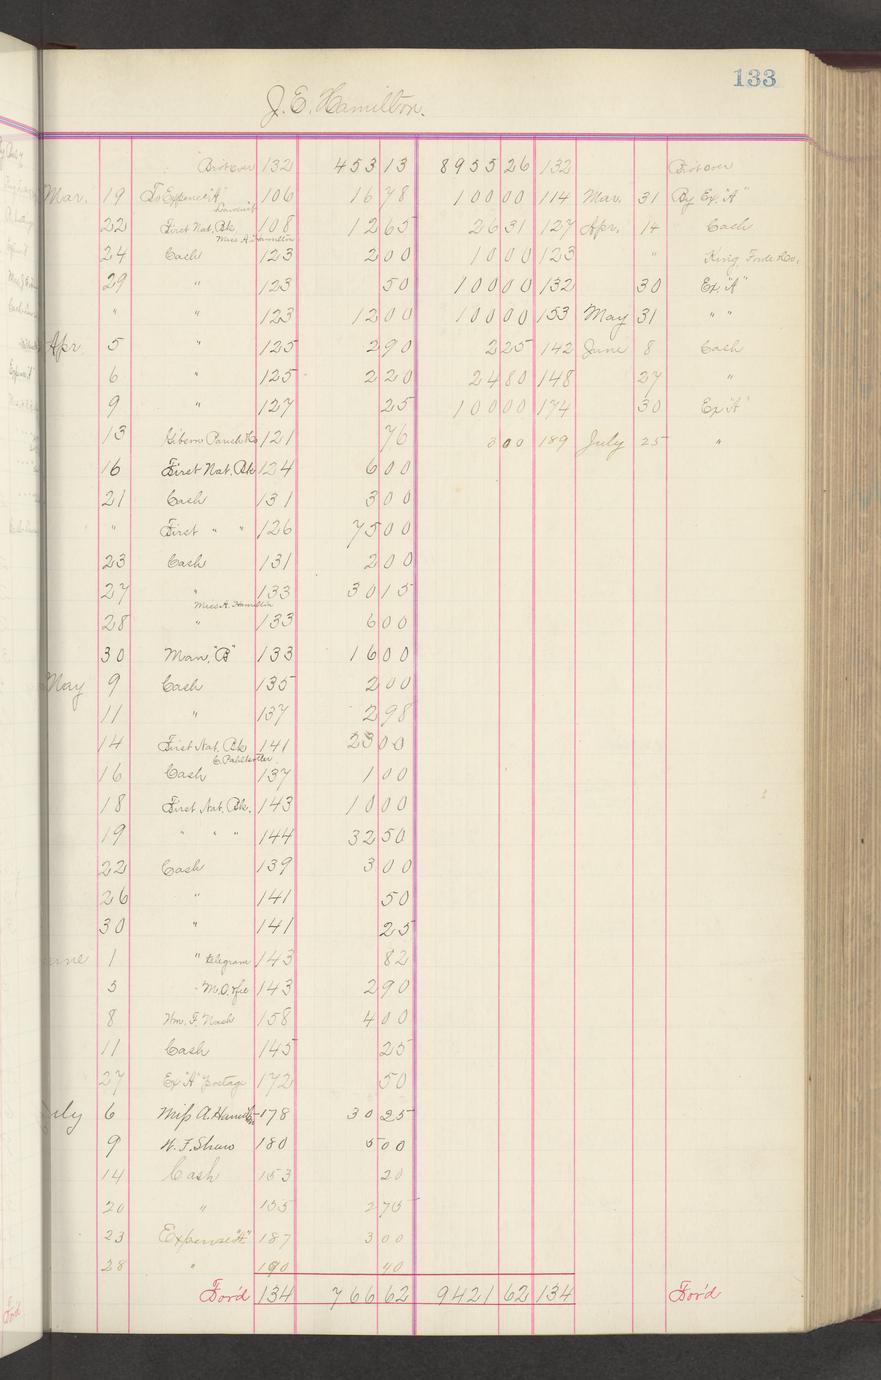 133
J. E. Hamilton.
Bro't over 132 453 13 8955 26 132 Bro't over
Mar. 19 To Expense "A" 106 16 78 100 00 114 Mar. 31 By Ex. "A"
22 First Nat. Bk. 108 12 65 26 31 127 Apr. 14 Cash
Miss A. Hamilton
24 Cash 123 2 00 10 00 123 " King, &Co.
29 " 123 50 100 00 132 30 Ex. "A"
" " 123 12 00 100 00 153 May 31 " "
Apr 5 " 125 2 90 2 25 142 June 8 Cash
6 " 125 2 20 24 80 148 27 "
9 " 127 25 100 00 174 30 Ex "A"
13 121 76 3 00 189 July 25 "
16 First Nat. Bk 124 6 00
21 Cash 131 3 00
" First " " 126 75 00
23 Cash 131 2 00
27 " 133 30 15
Miss A. Hamilton
28 " 133 6 00
30 Man. "B" 133 16 00
May 9 Cash 135 2 00
11 " 137 2 98
14 First Nat. Bk 141 23 00
16 Cash 137 1 00
18 First Nat. Bk. 143 10 00
19 " " " 144 32 50
22 Cash 139 3 00
26 " 141 50
30 " 141 25
une 1 " telegram 143 82
5 " M.O. & fee 143 2 90
8 Wm. F. Nash 158 4 00
11 Cash 145 25
27 Ex "A" postage 172 50
uly 6 Miss A. Hamilton 178 30 25
9 W. F. Shaw 180 5 00
14 Cash 153 20
20 " 155 2 75
23 Expense "A" 187 3 00
28 " 190 40
For'd 134 766 62 9421 62 134 For'd